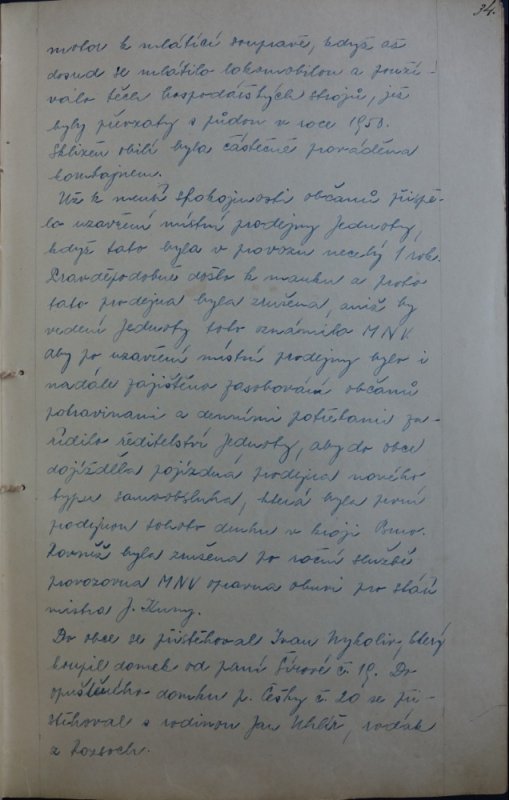 34.
motor k mlátící soupravě, když až
dosud se mlátilo lokomobilou a použí-
válo těch hospodářských strojů, jež
byly převzaty s půdou v roce 1950.
Sklizeň obilí byla částečně prováděna
kombajnem.
Už k menší spokojenosti občanů přispě-
lo uzavření místní prodejny Jednoty,
když tato byla v provozu necelý 1 rok.
Pravděpodobně došlo k manku a proto
tato prodejna byla zrušena, aniž by
vedení Jednoty toto oznámilo MNV.
Aby po uzavření místní prodejny bylo i
nadále zajištěno zásobování občanů
potravinami a denními potřebami za-
řídilo ředitelství Jednoty, aby do obce
dojížděla pojízdná prodejna nového
typu samoobsluha, která byla první
prodejnou tohoto druhu v kraji Brno.
Rovněž byla zrušena po roční službě
provozovna MNV oprava obuvi pro stáří
mistra J. Kuny.
Do obce se přistěhoval Ivan Nykoliv, který
koupil domek od paní Šírové č. 19. Do
opuštěného domku p. Češky č. 20 se při-
stěhoval s rodinou Jan Uhlíř, rodák
z Rozsoch.